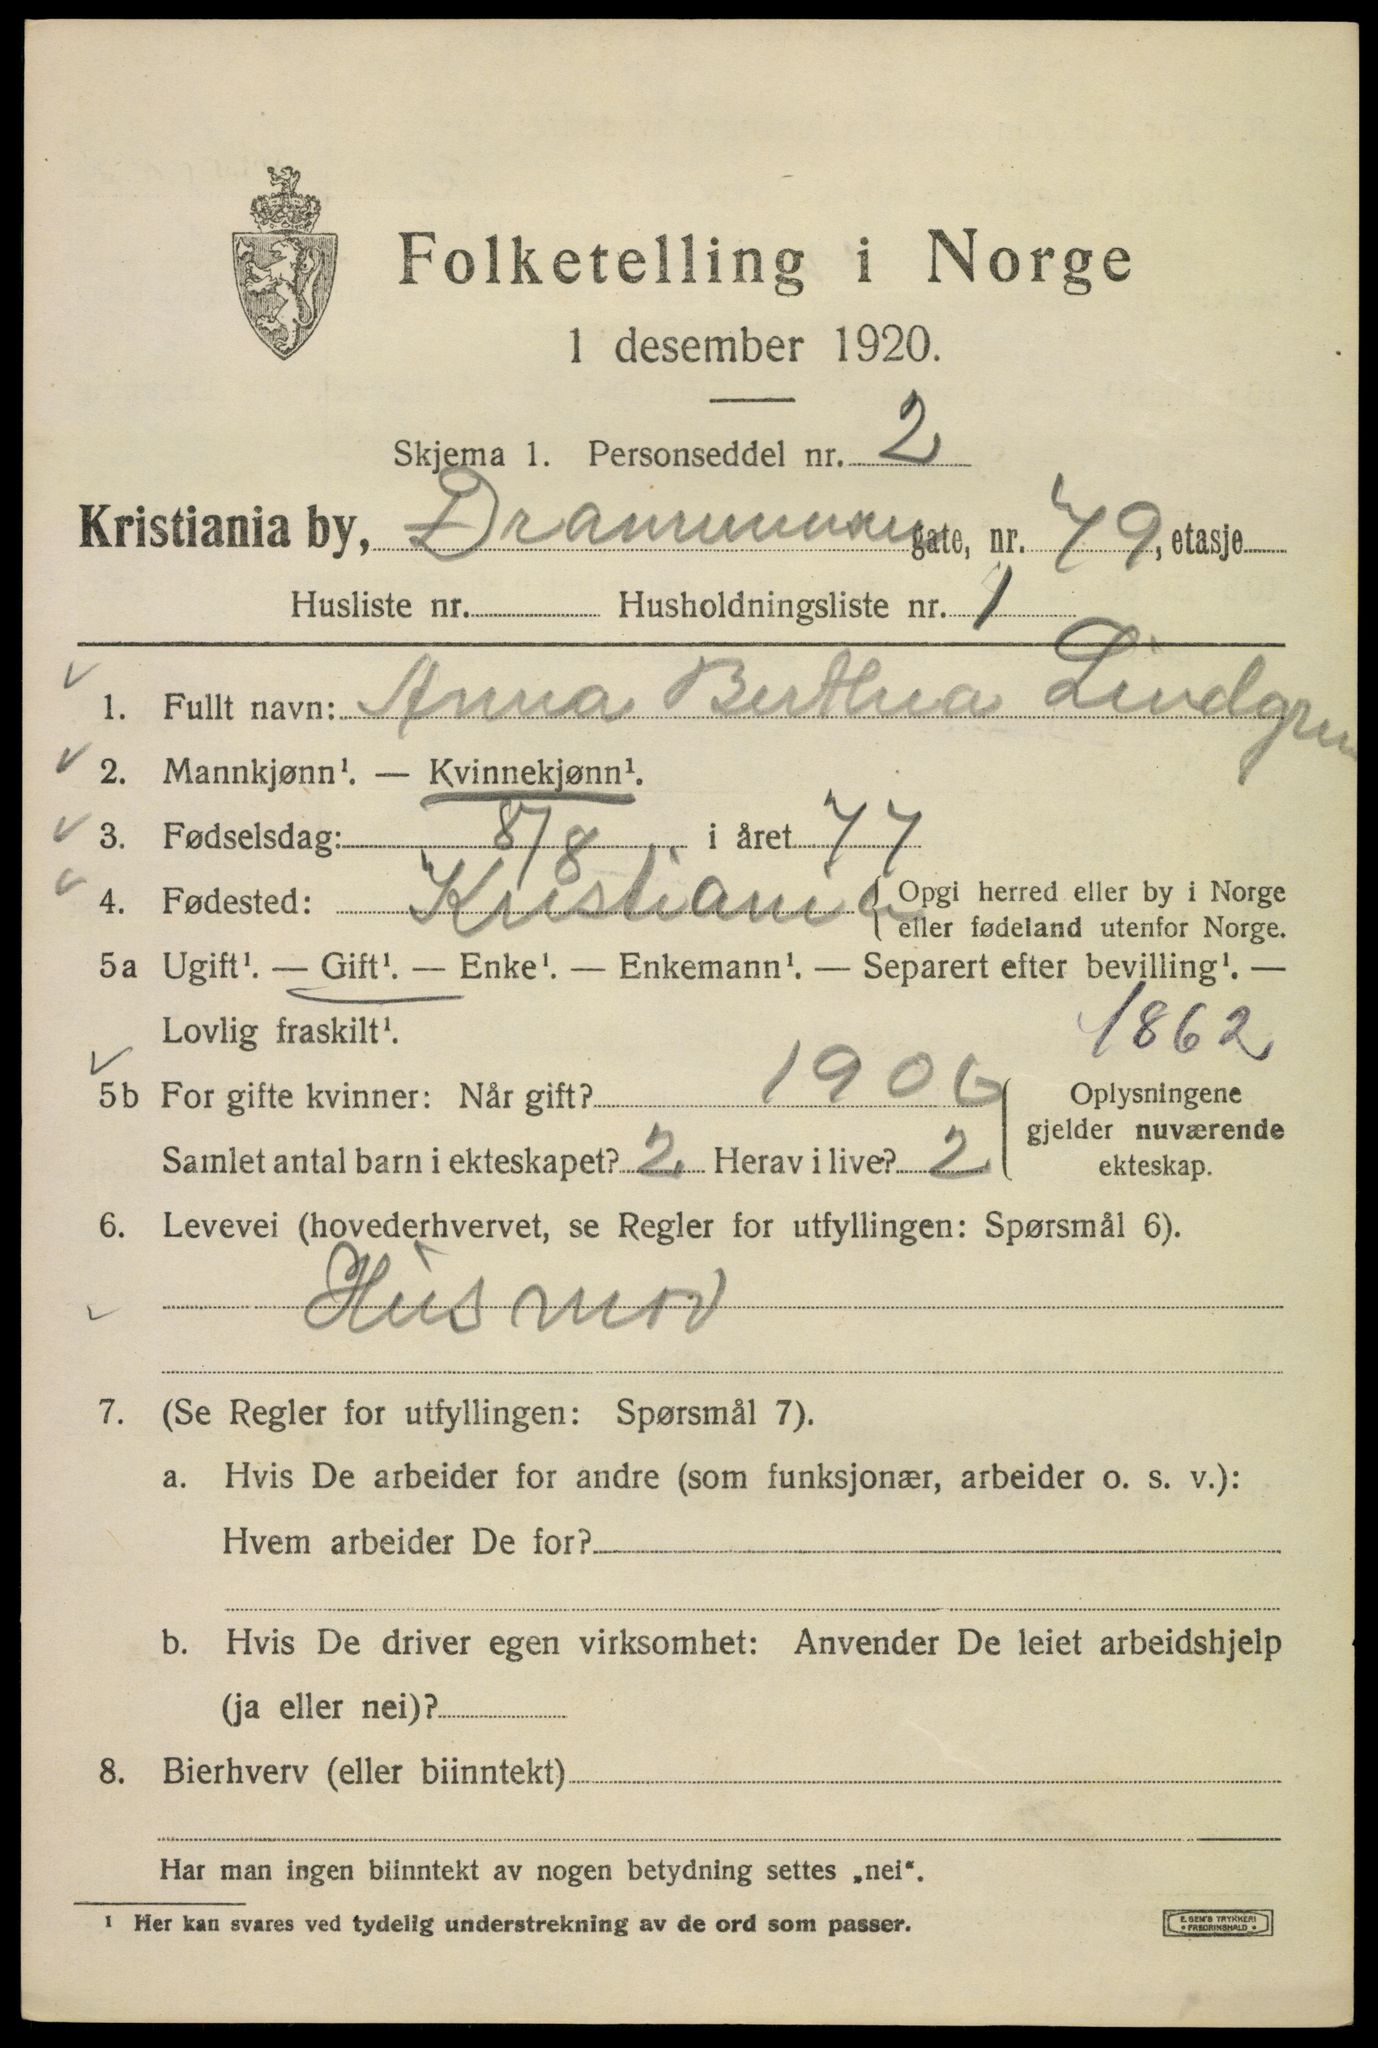 Folketelling i Norge
1 desember 1920.
Skjema 1. Personseddel nr. 2
Kristiania by, Drammensv gate, nr. 79, etasje
Husliste nr. Husholdningsliste nr. 1
1. Fullt navn: Anna Berthea Lindgren
2. Mannkjønn¹. — Kvinnekjønn¹.
3. Fødselsdag: 8/8 i året 77
4. Fødested: Kristiania { Opgi herred eller by i Norge
eller fødeland utenfor Norge.
5a Ugift¹. — Gift¹. — Enke¹. — Enkemann¹. — Separert efter bevilling¹. —
Lovlig fraskilt¹.
1862
5b For gifte kvinner: Når gift? 1906
Samlet antal barn i ekteskapet? 2 Herav i live? 2
Oplysningene
gjelder nuværende
ekteskap.
6. Levevei (hovederhvervet, se Regler for utfyllingen: Spørsmål 6).
Husmor
7. (Se Regler for utfyllingen: Spørsmål 7).
a. Hvis De arbeider for andre (som funksjonær, arbeider o. s. v.):
Hvem arbeider De for?
b. Hvis De driver egen virksomhet: Anvender De leiet arbeidshjelp
(ja eller nei)?
8. Bierhverv (eller biinntekt)
Har man ingen biinntekt av nogen betydning settes „nei".
¹ Her kan svares ved tydelig understrekning av de ord som passer.
E. SEM'S TRYKKERI
* FREDRIKSHALD *